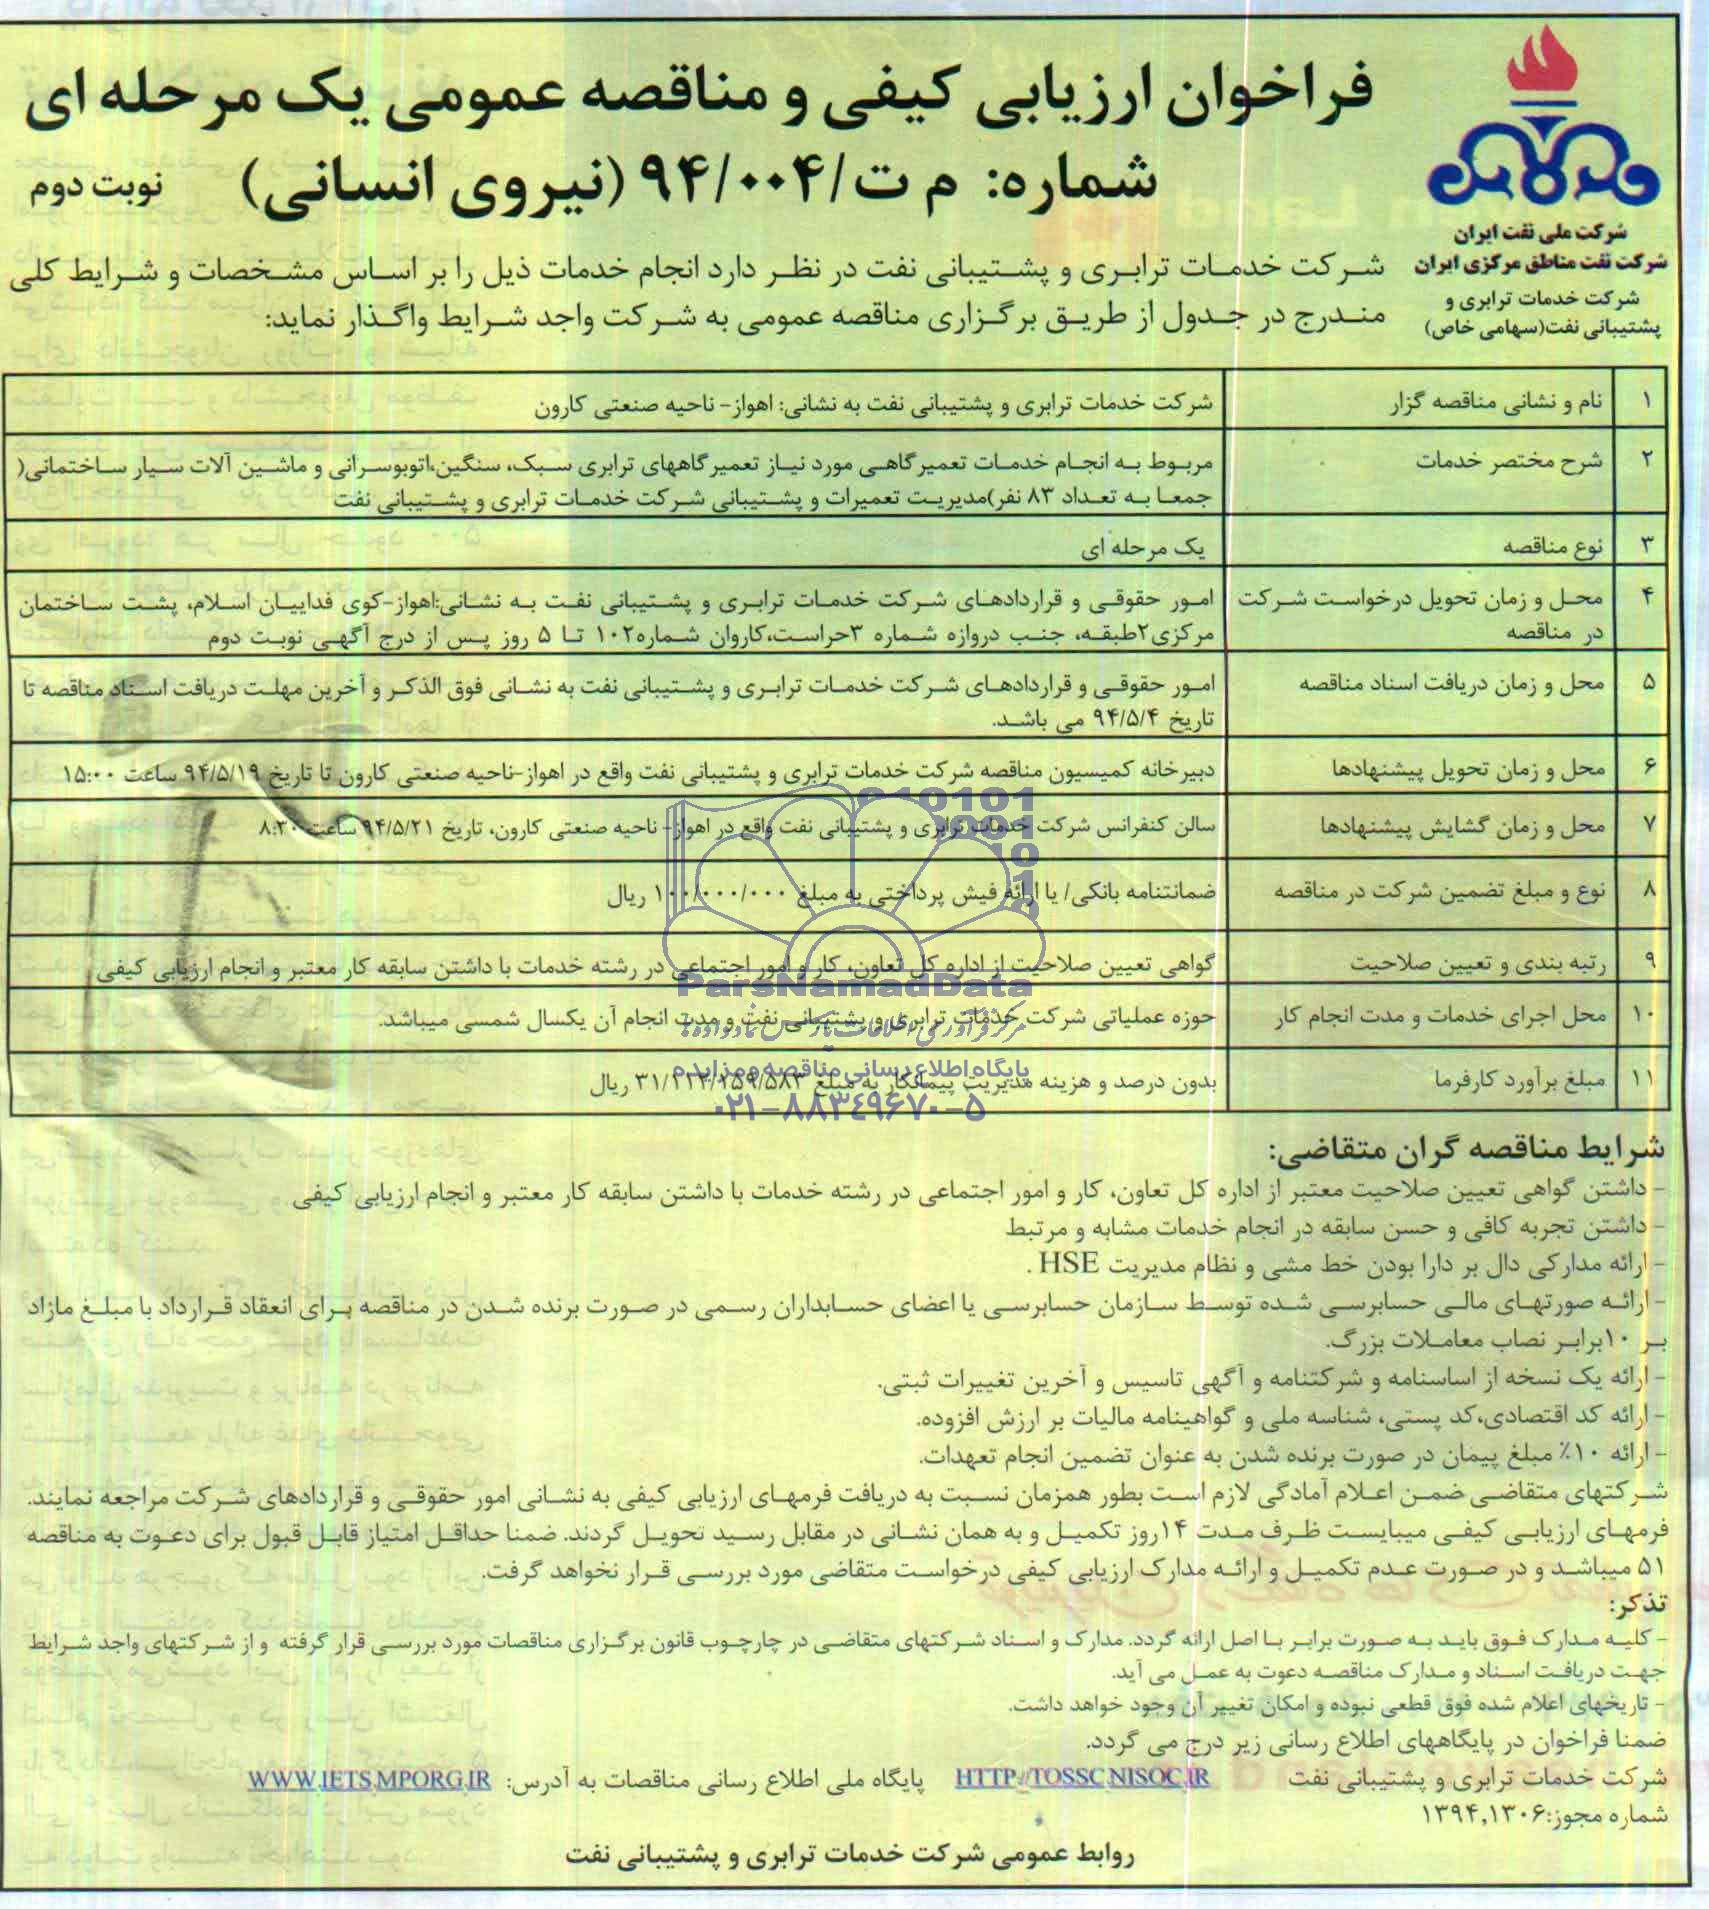 فراخوان ارزیابی کیفی و مناقصه عمومی یک مرحله ای
شماره: م ت/۹۴/۰۰۴ (نیروی انسانی)
نوبت دوم
شرکت ملی نفت ایران
شرکت نفت مناطق مرکزی ایران
شرکت خدمات ترابری و
پشتیبانی نفت(سهامی خاص)
شرکت خدمات ترابری و پشتیبانی نفت در نظر دارد انجام خدمات ذیل را بر اساس مشخصات و شرایط کلی
مندرج در جدول از طریق برگزاری مناقصه عمومی به شرکت واجد شرایط واگذار نماید:
۱ نام و نشانی مناقصه گزار شرکت خدمات ترابری و پشتیبانی نفت به نشانی: اهواز- ناحیه صنعتی کارون
۲ شرح مختصر خدمات مربوط به انجام خدمات تعمیرگاهی مورد نیاز تعمیرگاههای ترابری سبک، سنگین،اتوبوسرانی و ماشین آلات سیار ساختمانی(
جمعا به تعداد ۸۳ نفر)مدیریت تعمیرات و پشتیبانی شرکت خدمات ترابری و پشتیبانی نفت
۳ نوع مناقصه یک مرحله ای
۴ محل و زمان تحویل درخواست شرکت امور حقوقی و قراردادهای شرکت خدمات ترابری و پشتیبانی نفت به نشانی:اهواز-کوی فداییان اسلام، پشت ساختمان
در مناقصه مرکزی۲طبقه، جنب دروازه شماره ۳حراست،کاروان شماره۱۰۲ تا ۵ روز پس از درج آگهی نوبت دوم
۵ محل و زمان دریافت اسناد مناقصه امور حقوقی و قراردادهای شرکت خدمات ترابری و پشتیبانی نفت به نشانی فوق الذکر و آخرین مهلت دریافت اسناد مناقصه تا
تاریخ ۹۴/۵/۴ می باشد.
۶ محل و زمان تحویل پیشنهادها دبیرخانه کمیسیون مناقصه شرکت خدمات ترابری و پشتیبانی نفت واقع در اهواز-ناحیه صنعتی کارون تا تاریخ ۹۴/۵/۱۹ ساعت ۱۵:۰۰
۷ محل و زمان گشایش پیشنهادها سالن کنفرانس شرکت خدمات ترابری و پشتیبانی نفت واقع در اهواز- ناحیه صنعتی کارون، تاریخ ۹۴/۵/۲۱ ساعت ۸:۳۰
۸ نوع و مبلغ تضمین شرکت در مناقصه ضمانتنامه بانکی/ یا ارائه فیش پرداختی به مبلغ ۱۰۰/۰۰۰/۰۰۰ ریال
۹ رتبه بندی و تعیین صلاحیت گواهی تعیین صلاحیت از اداره کل تعاون، کار و امور اجتماعی در رشته خدمات با داشتن سابقه کار معتبر و انجام ارزیابی کیفی
۱۰ محل اجرای خدمات و مدت انجام کار حوزه عملیاتی شرکت خدمات ترابری و پشتیبانی نفت و مدت انجام آن یکسال شمسی میباشد.
۱۱ مبلغ برآورد کارفرما بدون درصد و هزینه مدیریت پیمانکار به مبلغ ریال
ParsNamadData
مرکز فرآوری اطلاعات پارس نماد داده ها
پایگاه اطلاع رسانی مناقصه و مزایده
۰۲۱-۸۸۳۴۹۶۷۰-۵
شرایط مناقصه گران متقاضی:
- داشتن گواهی تعیین صلاحیت معتبر از اداره کل تعاون، کار و امور اجتماعی در رشته خدمات با داشتن سابقه کار معتبر و انجام ارزیابی کیفی
- داشتن تجربه کافی و حسن سابقه در انجام خدمات مشابه و مرتبط
- ارائه مدارکی دال بر دارا بودن خط مشی و نظام مدیریت HSE .
- ارائه صورتهای مالی حسابرسی شده توسط سازمان حسابرسی یا اعضای حسابداران رسمی در صورت برنده شدن در مناقصه برای انعقاد قرارداد با مبلغ مازاد
بر ۱۰برابر نصاب معاملات بزرگ.
- ارائه یک نسخه از اساسنامه و شرکتنامه و آگهی تاسیس و آخرین تغییرات ثبتی.
- ارائه کد اقتصادی،کد پستی، شناسه ملی و گواهینامه مالیات بر ارزش افزوده.
- ارائه ۱۰٪ مبلغ پیمان در صورت برنده شدن به عنوان تضمین انجام تعهدات.
شرکتهای متقاضی ضمن اعلام آمادگی لازم است بطور همزمان نسبت به دریافت فرمهای ارزیابی کیفی به نشانی امور حقوقی و قراردادهای شرکت مراجعه نمایند.
فرمهای ارزیابی کیفی میبایست ظرف مدت ۱۴روز تکمیل و به همان نشانی در مقابل رسید تحویل گردند. ضمنا حداقل امتیاز قابل قبول برای دعوت به مناقصه
۵۱ میباشد و در صورت عدم تکمیل و ارائه مدارک ارزیابی کیفی درخواست متقاضی مورد بررسی قرار نخواهد گرفت.
تذکر:
- کلیه مدارک فوق باید به صورت برابر با اصل ارائه گردد. مدارک و اسناد شرکتهای متقاضی در چارچوب قانون برگزاری مناقصات مورد بررسی قرار گرفته و از شرکتهای واجد شرایط
جهت دریافت اسناد و مدارک مناقصه دعوت به عمل می آید.
- تاریخهای اعلام شده فوق قطعی نبوده و امکان تغییر آن وجود خواهد داشت.
ضمنا فراخوان در پایگاههای اطلاع رسانی زیر درج می گردد.
شرکت خدمات ترابری و پشتیبانی نفت HTTP://TOSSC.NISOC.IR پایگاه ملی اطلاع رسانی مناقصات به آدرس: WWW.IETS.MPORG.IR
شماره مجوز:۱۳۹۴,۱۳۰۶
روابط عمومی شرکت خدمات ترابری و پشتیبانی نفت